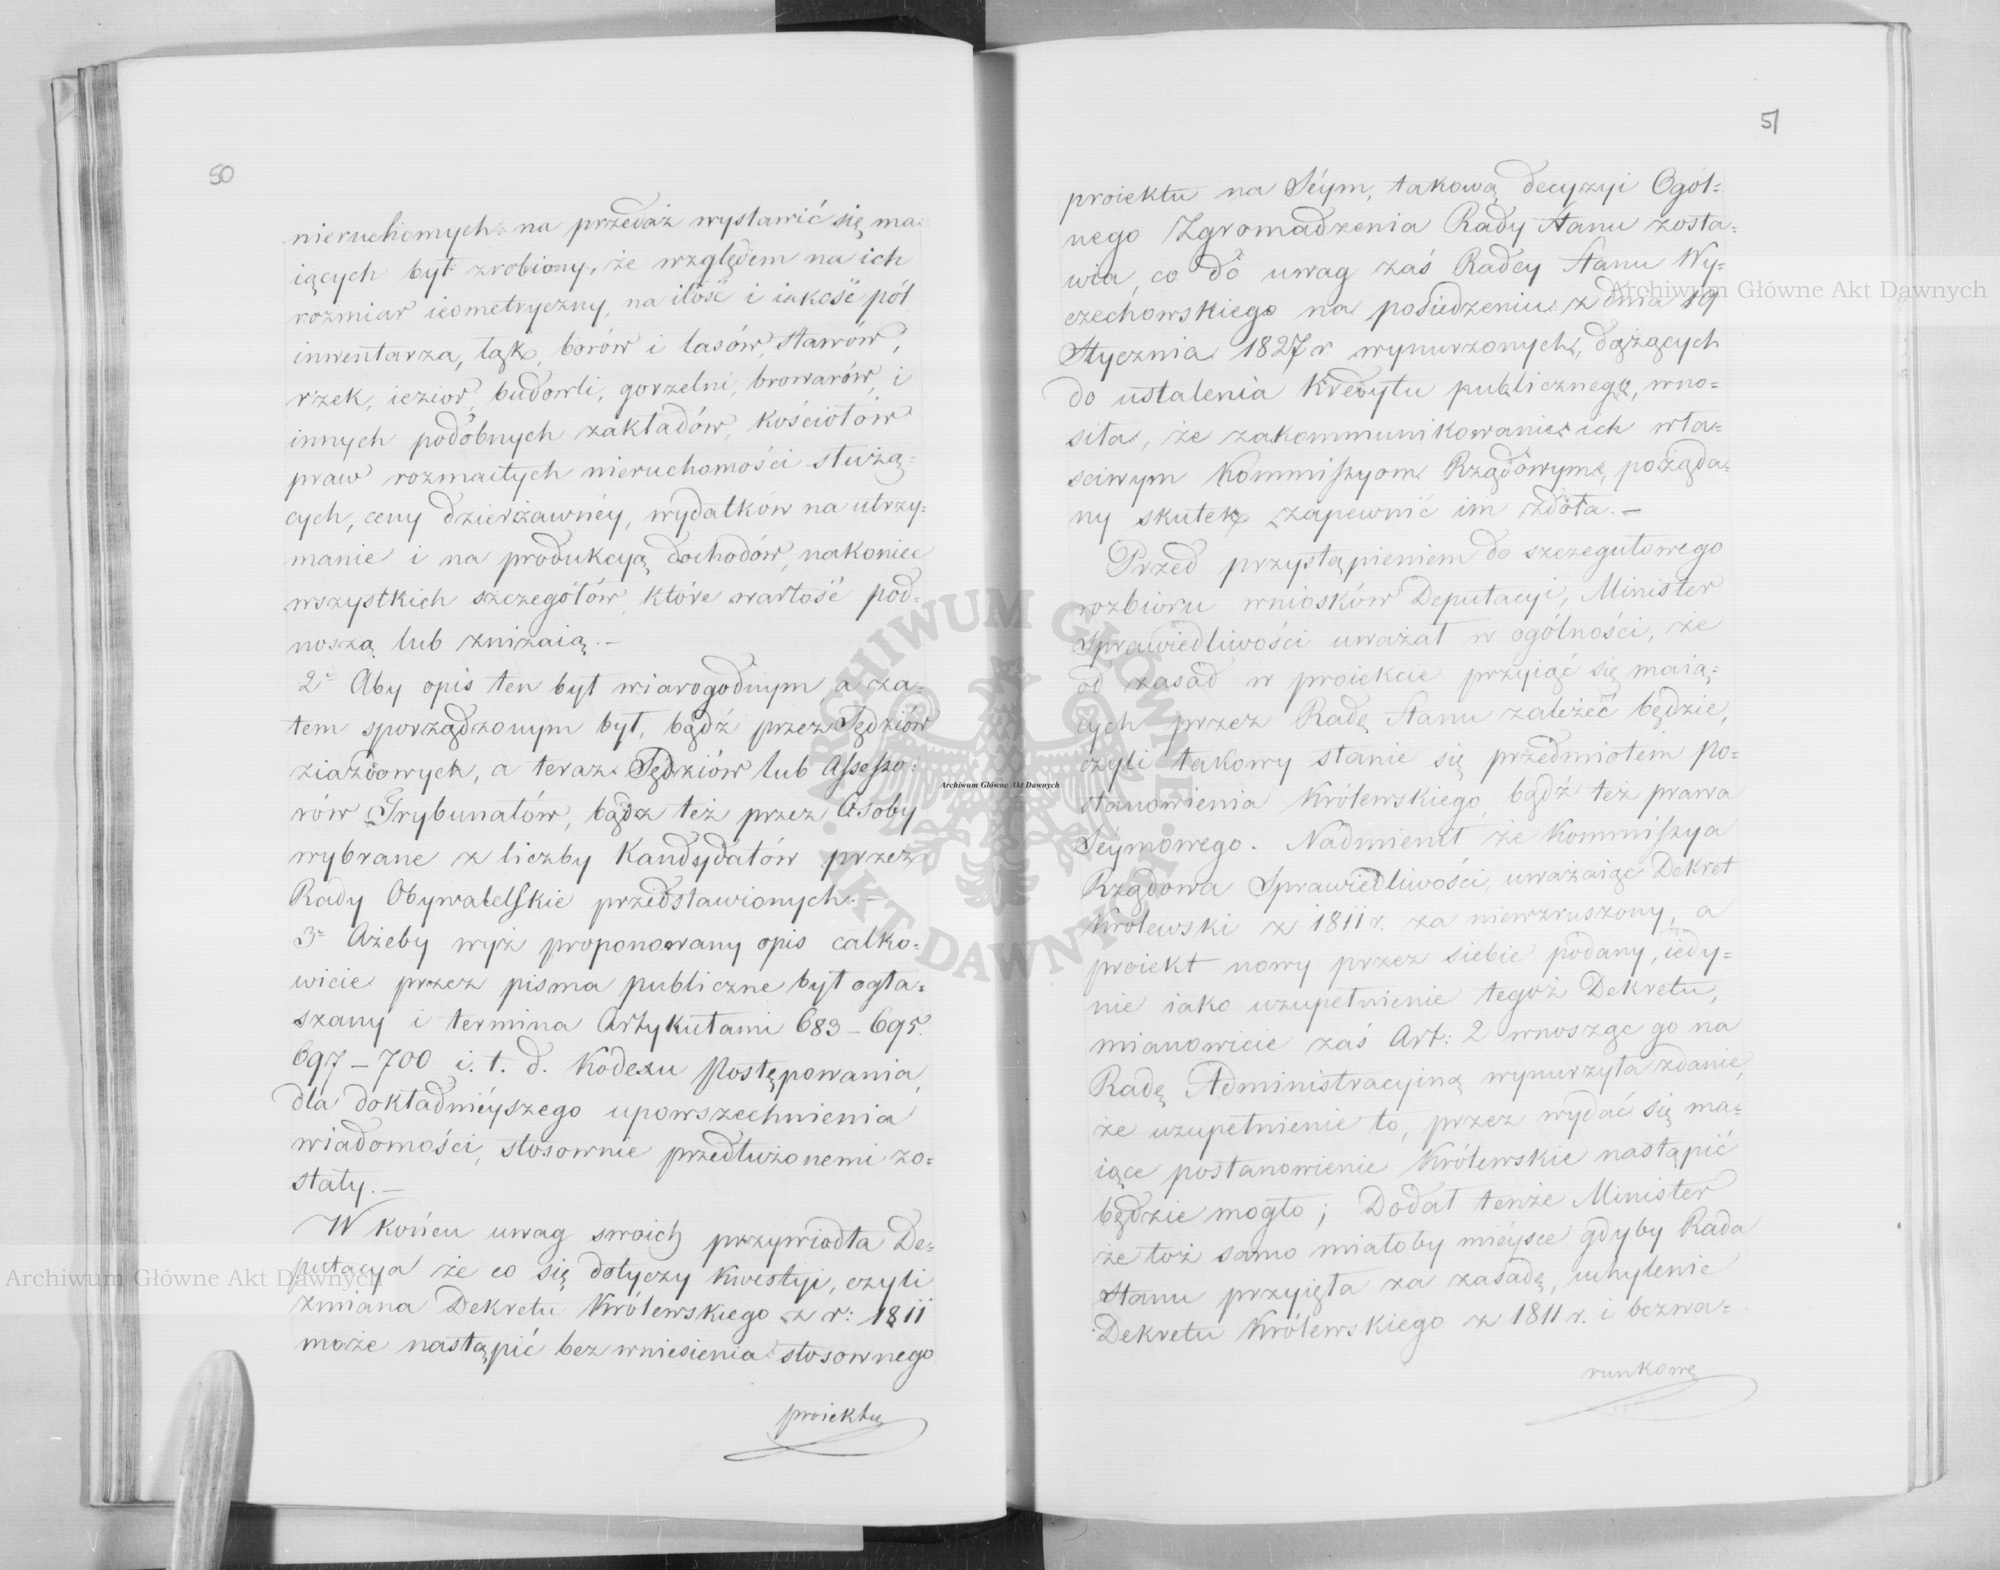 50
nieruchomych na przedaż wystawić się ma=
iących był zrobiony, że względem na ich
rozmiar ieometryczny, na ilość i iakość pól
inwentarza, łąk, borów i lasów, stawów,
rzek, iezior, budowli, gorzelni, browarów, i
innych podobnych zakładów, kościołów
praw rozmaitych nieruchomości służą=
cych, ceny dzierżawnéy, wydatków na utrzy=
manie i na produkcyą dochodów, nakoniec
wszystkich szczegółów, które wartość pod=
noszą lub zniżaią.—
2e Aby opis ten był wiarogodnym a za=
tem sporządzonym był, bądź przez Sędziów
ziazdowych, a teraz Sędziów lub Assesso=
rów Trybunałów, bądz też przez Osoby
wybrane z liczby Kandydatów przez
Rady Obywatelskie przedstawionych.—
3e Ażeby wyż proponowany opis całko=
wicie przez pisma publiczne był ogła=
szany i termina Artykułami 683 – 695.
697 – 700 i. t. d. Kodexu Postępowania,
dla dokładniéyszego upowszechnienia
wiadomości, stosownie przedłużonemi zo=
stały.—
W końcu uwag swoich przywiodła De=
putacya że co się dotyczy kwestyi, czyli
zmiana Dekretu Królewskiego z r: 1811
może nastąpić bez wniesienia stosownego
proiektu
51
proiektu na Séym, takową decyzyi Ogól=
nego Zgromadzenia Rady Stanu zosta=
wia, co do uwag zaś Radcy Stanu Wy=
czechowskiego na posiedzeniu z dnia 19
Stycznia 1827 r. wynurzonych, dążących
do ustalenia Kredytu publicznego, wno=
siła, że zakommunikowanie ich wła=
sciwym Kommissyom Rządowym, pożąda=
ny skutek zapewnić im zdoła.—
Przed przystąpieniem do szczegułowego
rozbioru wniosków Deputacyi, Minister
Sprawiedliwości uważał w ogólności, że
od zasad w proiekcie przyiąć się maią=
cych przez Radę Stanu zależeć będzie,
czyli takowy stanie się przedmiotem Po=
stanowienia Królewskiego, bądź też prawa
Séymowego. Nadmienił że Kommissya
Rządowa Sprawiedliwości, uważaiąc Dekret
Królewski z 1811 r. za niewzruszony, a
proiekt nowy przez siebie podany, iedy=
nie iako uzupełnienie tegoż Dekretu,
mianowicie zaś Art: 2 wnosząc go na
Radę Administracyiną wynurzyła zdanie,
że uzupełnienie to, przez wydać się ma=
iące postanowienie Królewskie nastąpić
będzie mogło; Dodał tenże Minister
że toż samo miałoby mieysce gdyby Rada
Stanu przyięła za zasadę, uchylenie
Dekretu Królewskiego z 1811 r. i bezwa=
runkowe
Archiwum Główne Akt Dawnych
Archiwum Główne Akt Dawnych
Archiwum Główne Akt Dawnych
ARCHIWUM GŁÓWNE AKT DAWNYCH